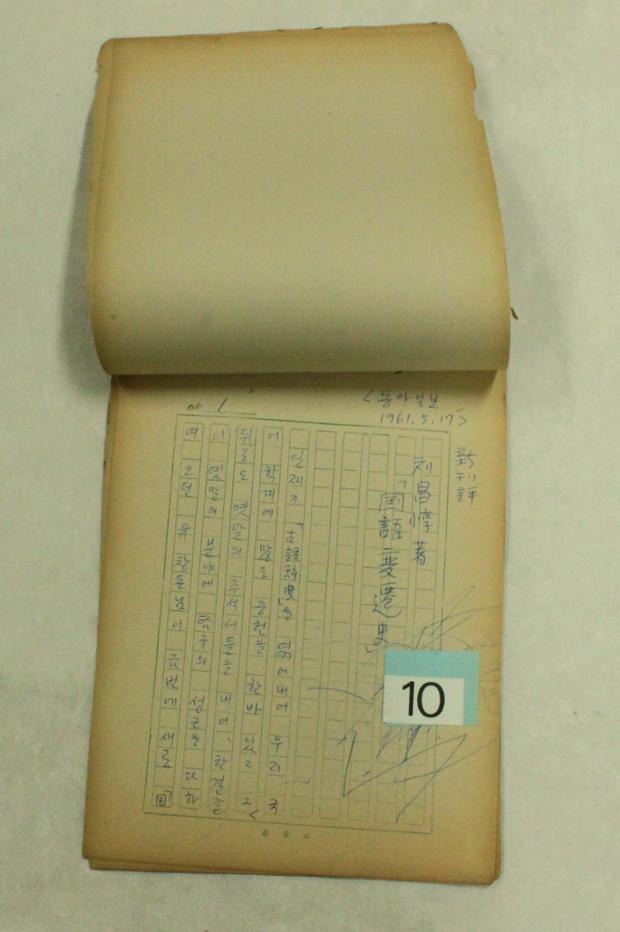 <동아일보
1961.5.17>
新刊評
刘昌惇 著
「国語変遷史」
1
일찌기 「古語辞典」을 엮어내어 우리 국
어 학계에 많은 공헌을 한 바 있고 그
뒤로도 옛말의 주석서들을 내어, 한결같
이 옛말의 분야에 탐구의 다하
여 오던 유창돈님이 금번에 새로 「国
10